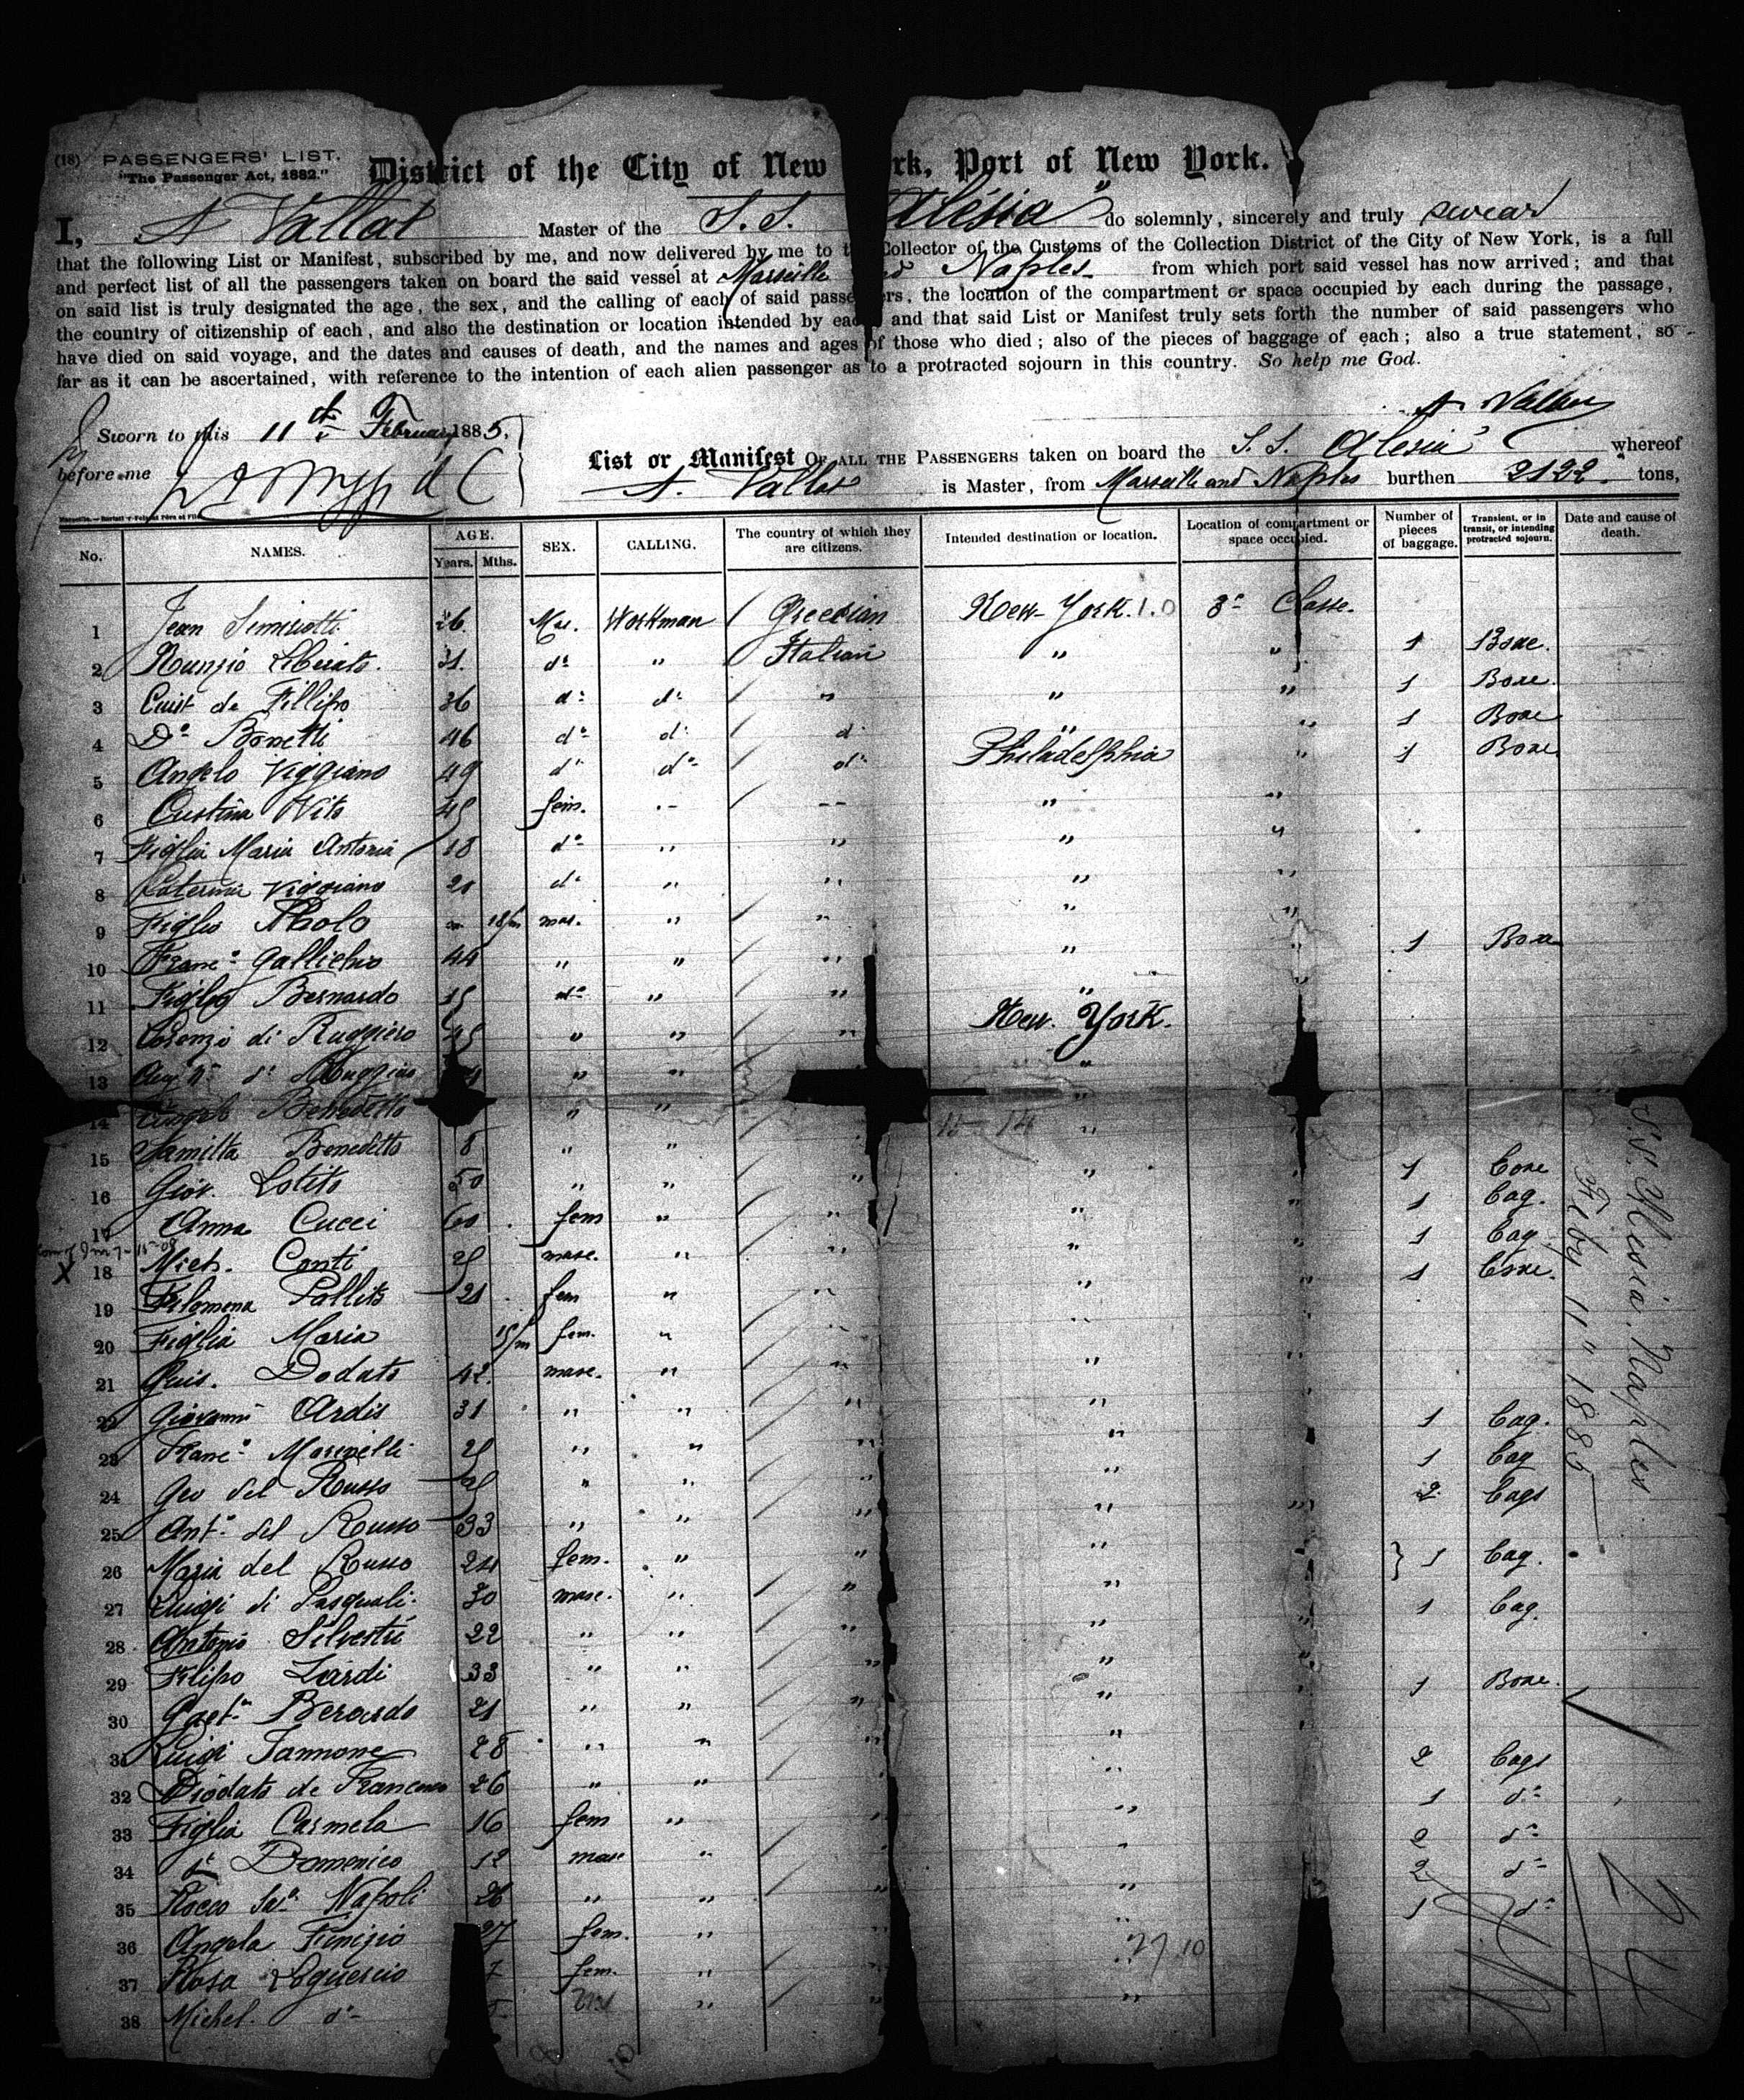 (18) PASSENGERS' LIST.
"The Passenger Act, 1882."
District of the City of New rk, Port of New York.
I, A Vallat Master of the S.S. Alésia" do solemnly, sincerely and truly swear
that the following List or Manifest, subscribed by me, and now delivered by me to t Collector of the Customs of the Collection District of the City of New York, is a full
and perfect list of all the passengers taken on board the said vessel at Marseille Naples from which port said vessel has now arrived; and that
on said list is truly designated the age, the sex, and the calling of each of said passe ers, the location of the compartment or space occupied by each during the passage,
the country of citizenship of each, and also the destination or location intended by each and that said List or Manifest truly sets forth the number of said passengers who
have died on said voyage, and the dates and causes of death, and the names and ages of those who died; also of the pieces of baggage of each; also a true statement, so
far as it can be ascertained, with reference to the intention of each alien passenger as to a protracted sojourn in this country. So help me God.
Sworn to this 11th February 1885,
before me
List or Manifest OF ALL THE PASSENGERS taken on board the S.S. Alesia whereof
A. Vallat is Master, from Marseille and Naples burthen 2122 tons,
No. NAMES. AGE. Years. Mths. SEX. CALLING. The country of which they are citizens. Intended destination or location. Location of compartment or space occupied. Number of pieces of baggage. Transient, or in transit, or intending protracted sojourn. Date and cause of death.
1 Jean 26 Mas. Workman Grecian New-York. 3e Classe.
2 Nunzio Liberato. 31. do " Italian " " 1 Boxe.
3 de Fillipo 36 do do " " " 1 Boxe
4 Do Bonetti 46 do do do " " 1 Boxe
5 Angelo Viggiano 49 do do do Philadelphia " 1 Boxe
6 Vito 45 fem. " "
7 Figlia Maria Antonia 18 do " " " "
8 Caterina Viggiano 20 do " " " "
9 Figlio Paolo 18/m mas. " " " "
10 Franco Gallichio 44 " " " " " 1 Boxe
11 Figlio Bernardo 15 do " " "
12 Lorenzo di Ruggiero 45 " " " New-York.
13 di Ruggiero " " "
14 Angelo Benedetto " " "
15 Benedetto 8 " " " "
16 Giov. Lotito 50 " " " " " 1 Boxe
17 Anna Cucci 60 fem " " " " 1 Bag.
18 Mich. Conti 25 masc. " " " 1 Bag
19 Filomena 21 fem " " " " 1 Boxe.
20 Figlia Maria 15/m fem. " " "
21 Guis. Dodato 42. masc. " " " "
22 Giovanni Ardis 31 " " " " " 1 Bag.
23 Franco 25 " " " " 1 Bag
24 Geo del Russo 25 " " " 2 Bags
25 Anto del Russo 33 " " " " "
26 Maria del Russo 24 fem. " " " } 1 Bag.
27 Luigi di Pasquali. 30 masc. " " " 1 Bag.
28 Antonio Silvestri 22 " " " " "
29 Filipo Zardi 33 " " " " " 1 Boxe.
30 Gaeto Berardo 21 " " " " "
31 Luigi Iannone 28 " " " " 2 Bags
32 Diodato de Francesco 26 " " " 1 do
33 Figlia Carmela 16 fem " " " 2 do
34 do Domenico 12 masc " " " 2 do
35 Rocco Napoli 26 " " " " 1 do
36 Angela Finizio 27 fem. " "
37 Rosa Loguercio 7 fem. " "
38 Michel. do " " "
S.S. Alesia, Naples
Feby 11" 1885